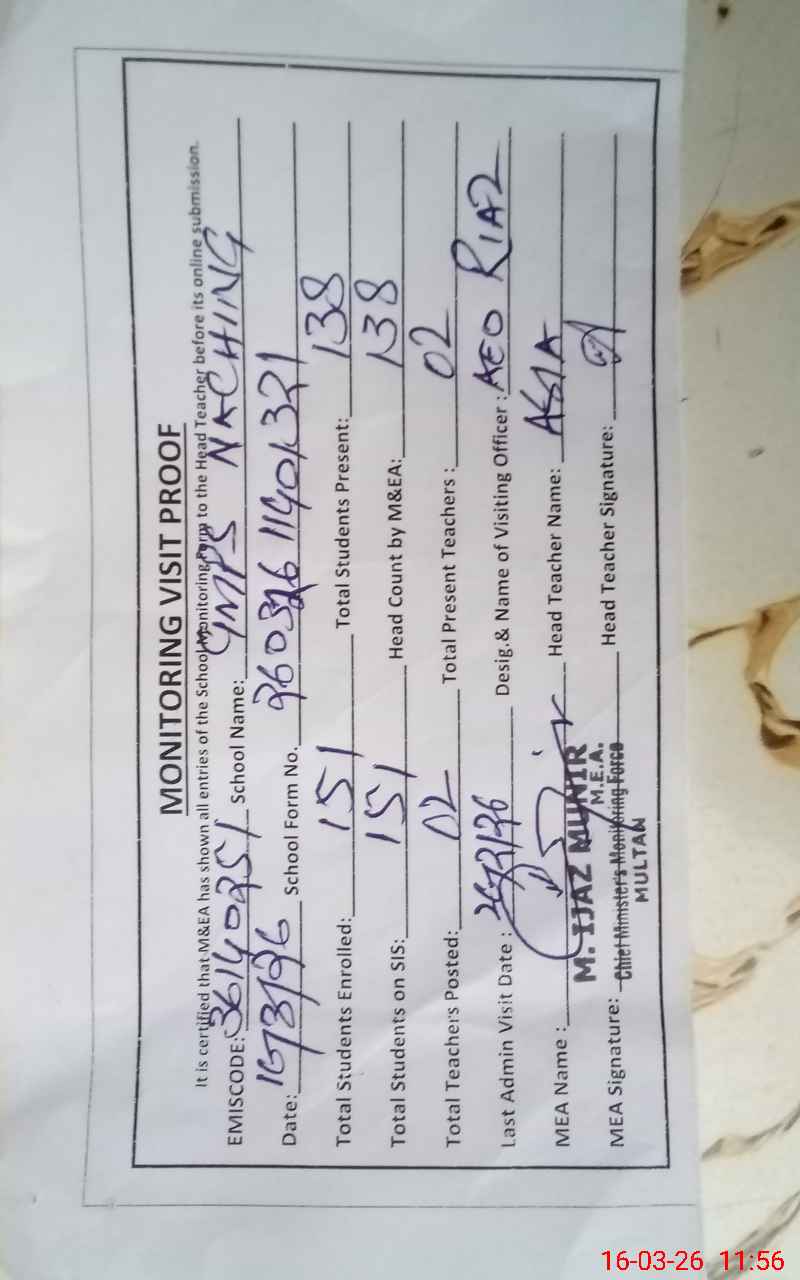 MONITORING VISIT PROOF
It is certified that M&EA has shown all entries of the School Monitoring Form to the Head Teacher before its online submission.
EMISCODE: 36140251 School Name: GMPS NACHING
Date: 16/3/26 School Form No.
Total Students Enrolled: 151 Total Students Present: 138
Total Students on SIS: 151 Head Count by M&EA: 138
Total Teachers Posted: 02 Total Present Teachers : 02
Last Admin Visit Date : Desig.& Name of Visiting Officer : AEO RIAZ
MEA Name : Head Teacher Name: ASIA
M. IJAZ MUNIR
M.E.A.
MEA Signature: Chief Minister's Monitoring Force Head Teacher Signature:
MULTAN
16-03-26 11:56